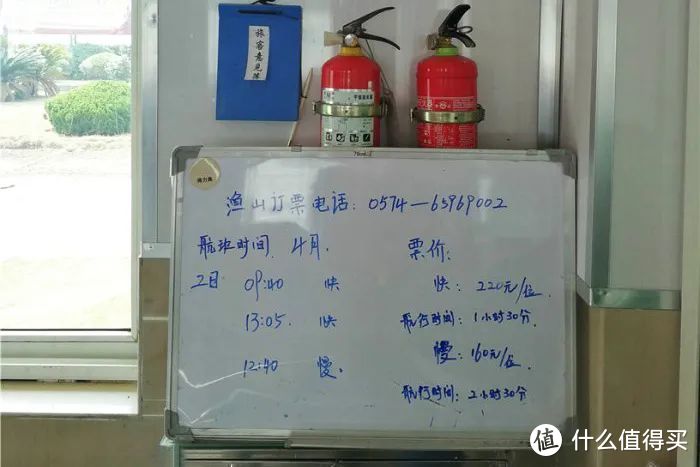 旅客意见簿
渔山订票电话：0574—65969002
航班时间 4月.
票价：
2日 09:40 快
快： 220元/位
13:05. 快
航行时间：1小时30分.
12:40 慢.
慢：160元/位
航行时间：2小时30分
值 什么值得买